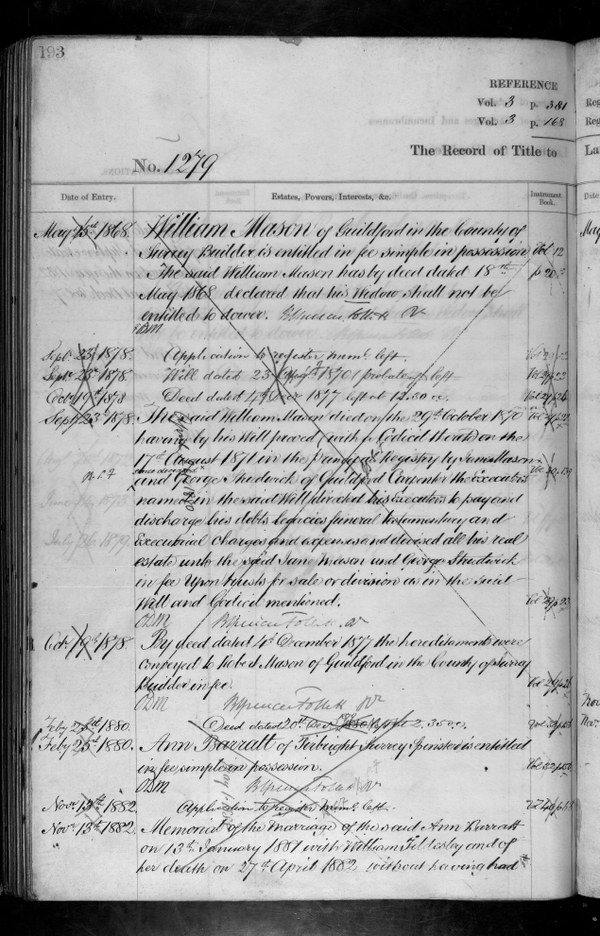 193
REFERENCE
Vol. 3 p. 381
Vol. 3 p. 168
The Record of Title to
No. 1279
Date of Entry.
Estates, Powers, Interests, &c.
Instrument Book.
May 1868. William Mason of Guildford in the County of
Surrey Builder is entitled in fee simple in possession Vol. 12
The said William Mason has by deed dated 18th
May 1868 declared that his Widow shall not be
entitled to dower.
Septr. 23d 1878. Application to register meml. left
Septr. 23d 1878. Will dated 23 1870 probate left
Octr. 19th 1878 Deed dated 4th Decr 1877 left at 12.50
Septr. 23d 1878. The said William Mason died on the 29th October 1870
having by his Will proved (with a Codicil thereto) on the
17th August 1871 in the Principal Registry by Jane Mason
and George Shudwick of Guildford Carpenter the Executors
named in the said Will directed his Executors to pay and
discharge his debts legacies funeral testamentary and
Executorial charges and expenses and devised all his real
estate unto the said Jane Mason and George Shudwick
in fee Upon trusts for sale or division as in the said
Will and Codicil mentioned.
Octr. 19th 1878. By deed dated 4th December 1877 the hereditaments were
conveyed to Robert Mason of Guildford in the County of Surrey
Builder in fee.
Feby 1880. Deed dated 20th left 2.30
Feby 25th 1880. Ann Barratt of Pirbright Surrey Spinster is entitled
in fee simple in possession.
Novr. 13th 1882. Application to register meml. left.
Novr. 13th 1882. Memorial of the marriage of the said Ann Barratt
on 13th January 1881 with William Tildesley and of
her death on 27th April 1882 without having had